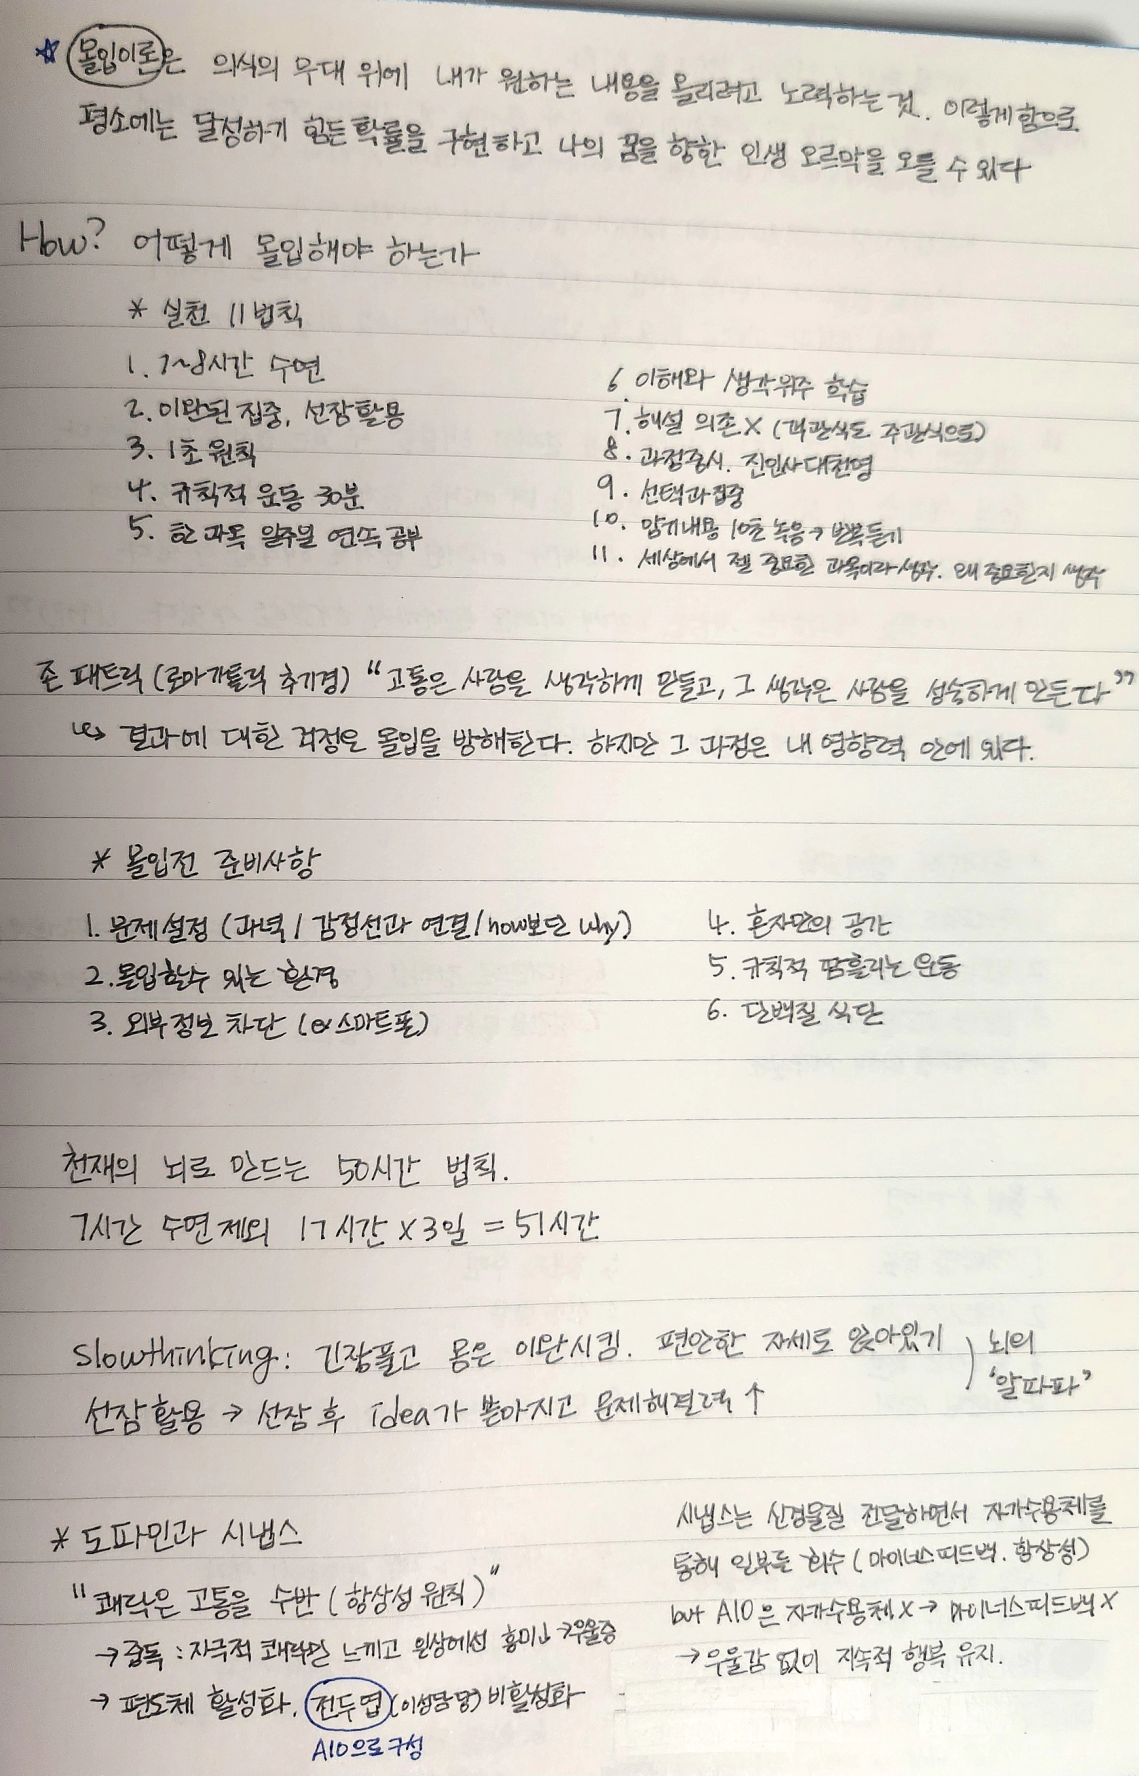 ☆ 몰입이론은 의식의 무대 위에 내가 원하는 내용을 올리려고 노력하는 것. 이렇게 함으로
평소에는 달성하기 힘든 확률을 구현하고 나의 꿈을 향한 인생 오르막을 오를 수 있다
How? 어떻게 몰입해야 하는가
* 실천 11법칙
1. 7~8시간 수면
2. 이완된 집중, 선잠활용
3. 1초 원칙
4. 규칙적 운동 30분
5. 한 과목 일주일 연속 공부
6. 이해와 생각위주 학습
7. 해설 의존 X (객관식도 주관식으로)
8. 과정중시. 진인사대천명
9. 선택과집중
10. 암기내용 10초 녹음 → 반복듣기
11. 세상에서 젤 중요한 과목이라 생각. 왜 중요한지 생각
존 패트릭 (로마가톨릭 추기경) "고통은 사람을 생각하게 만들고, 그 생각은 사람을 성숙하게 만든다"
↳ 결과에 대한 걱정은 몰입을 방해한다. 하지만 그 과정은 내 영향력 안에 있다.
* 몰입전 준비사항
1. 문제설정 (과녁 / 감정선과 연결 / how보단 why)
2. 몰입할수 있는 환경
3. 외부정보 차단 (ex 스마트폰)
4. 혼자만의 공간
5. 규칙적 땀흘리는 운동
6. 단백질 식단
천재의 뇌로 만드는 50시간 법칙.
7시간 수면제외 17시간 x 3일 = 51시간
Slowthinking: 긴장풀고 몸은 이완시킴. 편안한 자세로 앉아있기
선잠활용 → 선잠 후 idea가 쏟아지고 문제해결력 ↑
) 뇌의
'알파파'
* 도파민과 시냅스
"쾌락은 고통을 수반 (항상성 원칙)"
→ 중독 : 자극적 쾌락만 느끼고 일상에선 흥미↓ → 우울증
→ 편도체 활성화. 전두엽 (이성담당) 비활성화
A10으로 구성
시냅스는 신경물질 전달하면서 자가수용체를
통해 일부는 회수 (마이너스피드백. 항상성)
but A10은 자가수용체 X → 마이너스피드백 X
→ 우울감 없이 지속적 행복 유지.